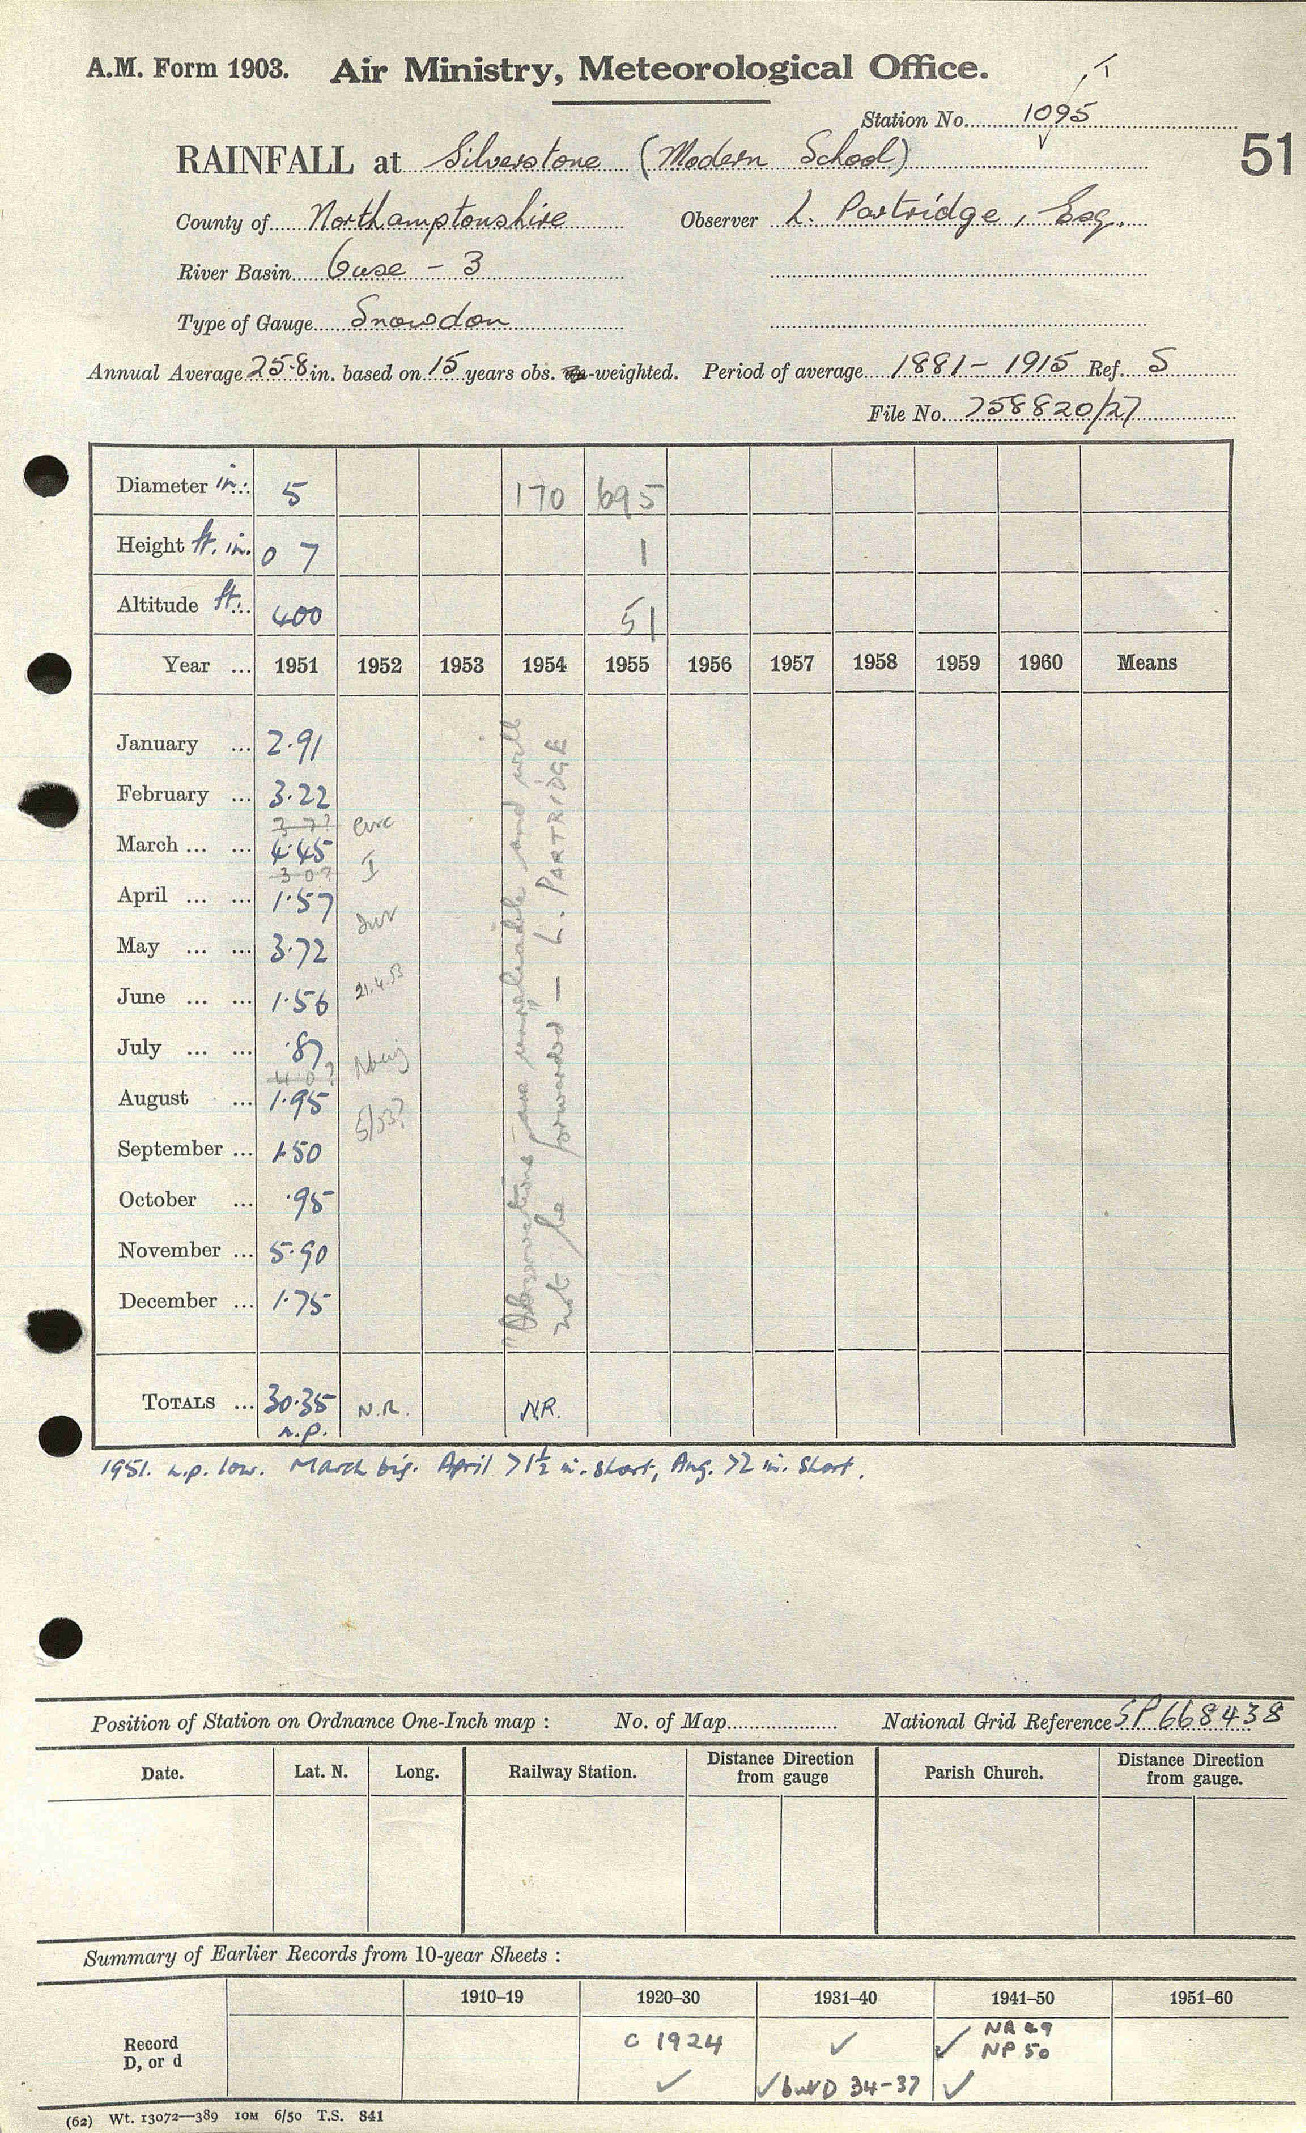 A.M. Form 1903. Air Ministry, Meteorological Office.
Station No. 1095
RAINFALL at Silverstone (Modern School)
51
County of Northamptonshire Observer L. Partridge, Esq.
River Basin Ouse - 3
Type of Gauge Snowdon
Annual Average 25.8 in. based on 15 years obs. -weighted. Period of average 1881 - 1915 Ref. S
File No. 758820/27
Diameter in.: 5 170 695
Height ft. in. 0 7 1
Altitude ft.. 400 51
Year ... 1951 1952 1953 1954 1955 1956 1957 1958 1959 1960 Means
January ... 2.91
February ... 3.22
3 7?
March ... ... 4.45
I
3 0?
April ... ... 1.57
May ... ... 3.72
June ... ... 1.56 21.4.53
July ... ... .87
4 0?
August ... 1.95
September ... 1.50 5/53?
October ... .95
November ... 5.90
December ... 1.75
"Observations are unreliable and will
not be forwarded — L. PARTRIDGE
TOTALS ... 30.35 N.R. NR.
n.p.
1951. n.p. low. March big. April >1½ in. short, Aug. >2 in. short.
Position of Station on Ordnance One-Inch map : No. of Map National Grid Reference SP 668438
Date. Lat. N. Long. Railway Station. Distance from gauge Direction Parish Church. Distance from gauge. Direction
Summary of Earlier Records from 10-year Sheets :
1910–19 1920–30 1931–40 1941–50 1951–60
Record C 1924 ✓ ✓ NR 49
NP 50
D, or d ✓ ✓ D 34-37 ✓
(62) Wt. 13072—389 10M 6/50 T.S. 841